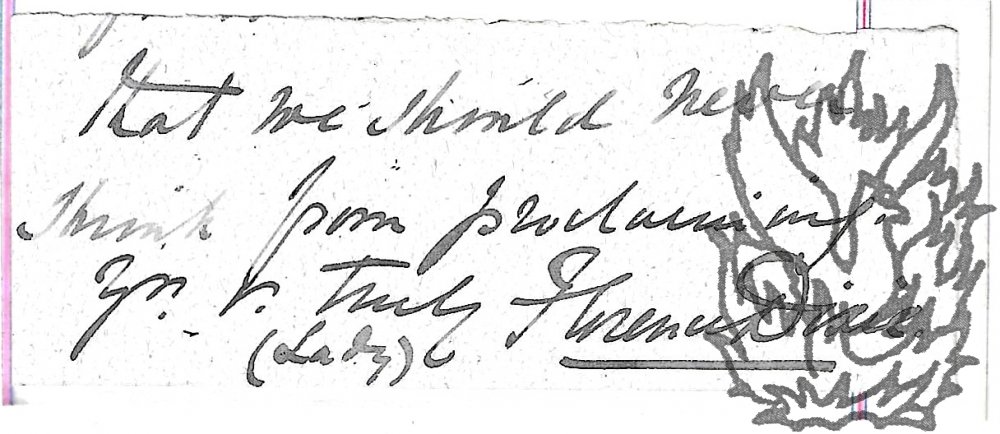 that we should never
shrink from proclaiming.
Yrs. v. truly Florence Dixie.
(Lady)